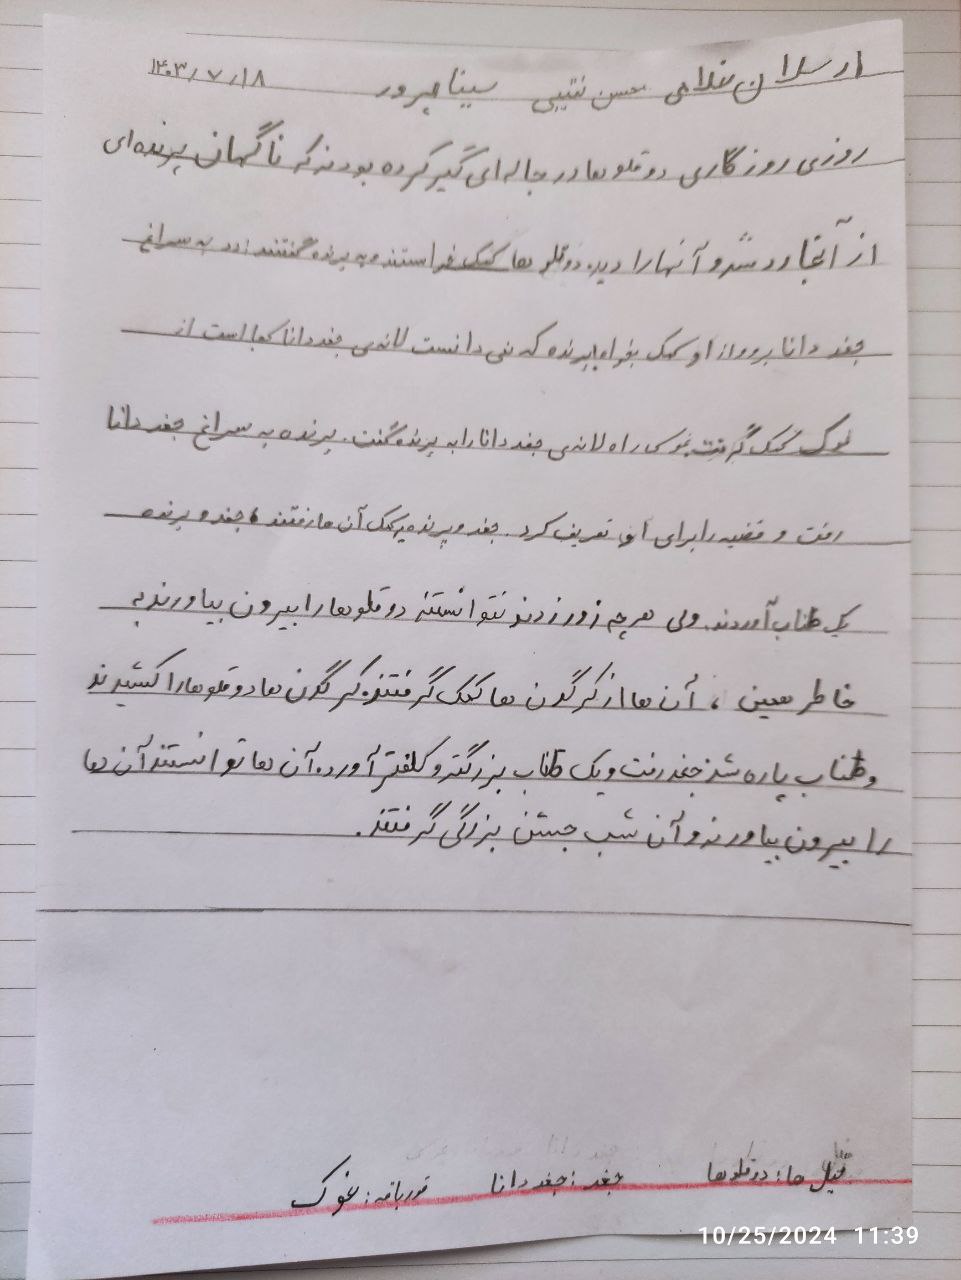 ارسلان غلامی محسن نقیبی سینا مهرور ۱۴۰۳/۷/۱۸
روزی روزگاری دوقلوها در چاله‌ای گیر کرده بودند که ناگهان پرنده‌ای
از آنجا رد شد و آنها را دید. دوقلو ها کمک خواستند و به پرنده گفتند: به سراغ
جغد دانا برو و از او کمک بخواه پرنده که نمی دانست لانه‌ی جغد دانا کجا است از
غوک کمک گرفت غوک راه لانه‌ی جغد دانا را به پرنده گفت. پرنده به سراغ جغد دانا
رفت و قضیه را برای او تعریف کرد. جغد و پرنده به کمک آن ها رفتند، جغد و پرنده
یک طناب آوردند. ولی هر چه زور زدند نتوانستند دوقلوها را بیرون بیاورند به
خاطر همین ، آن ها از کرگدن ها کمک گرفتند کرگدن ها دوقلوها را کشیدند
و طناب پاره شد جغد رفت و یک طناب بزرگتر و کلفتر آورد. آن ها توانستند آن ها
را بیرون بیاورند و آن شب جشن بزرگی گرفتند.
فیل ها: دوقلوها جغد: جغد دانا قورباغه: غوک
10/25/2024 11:39